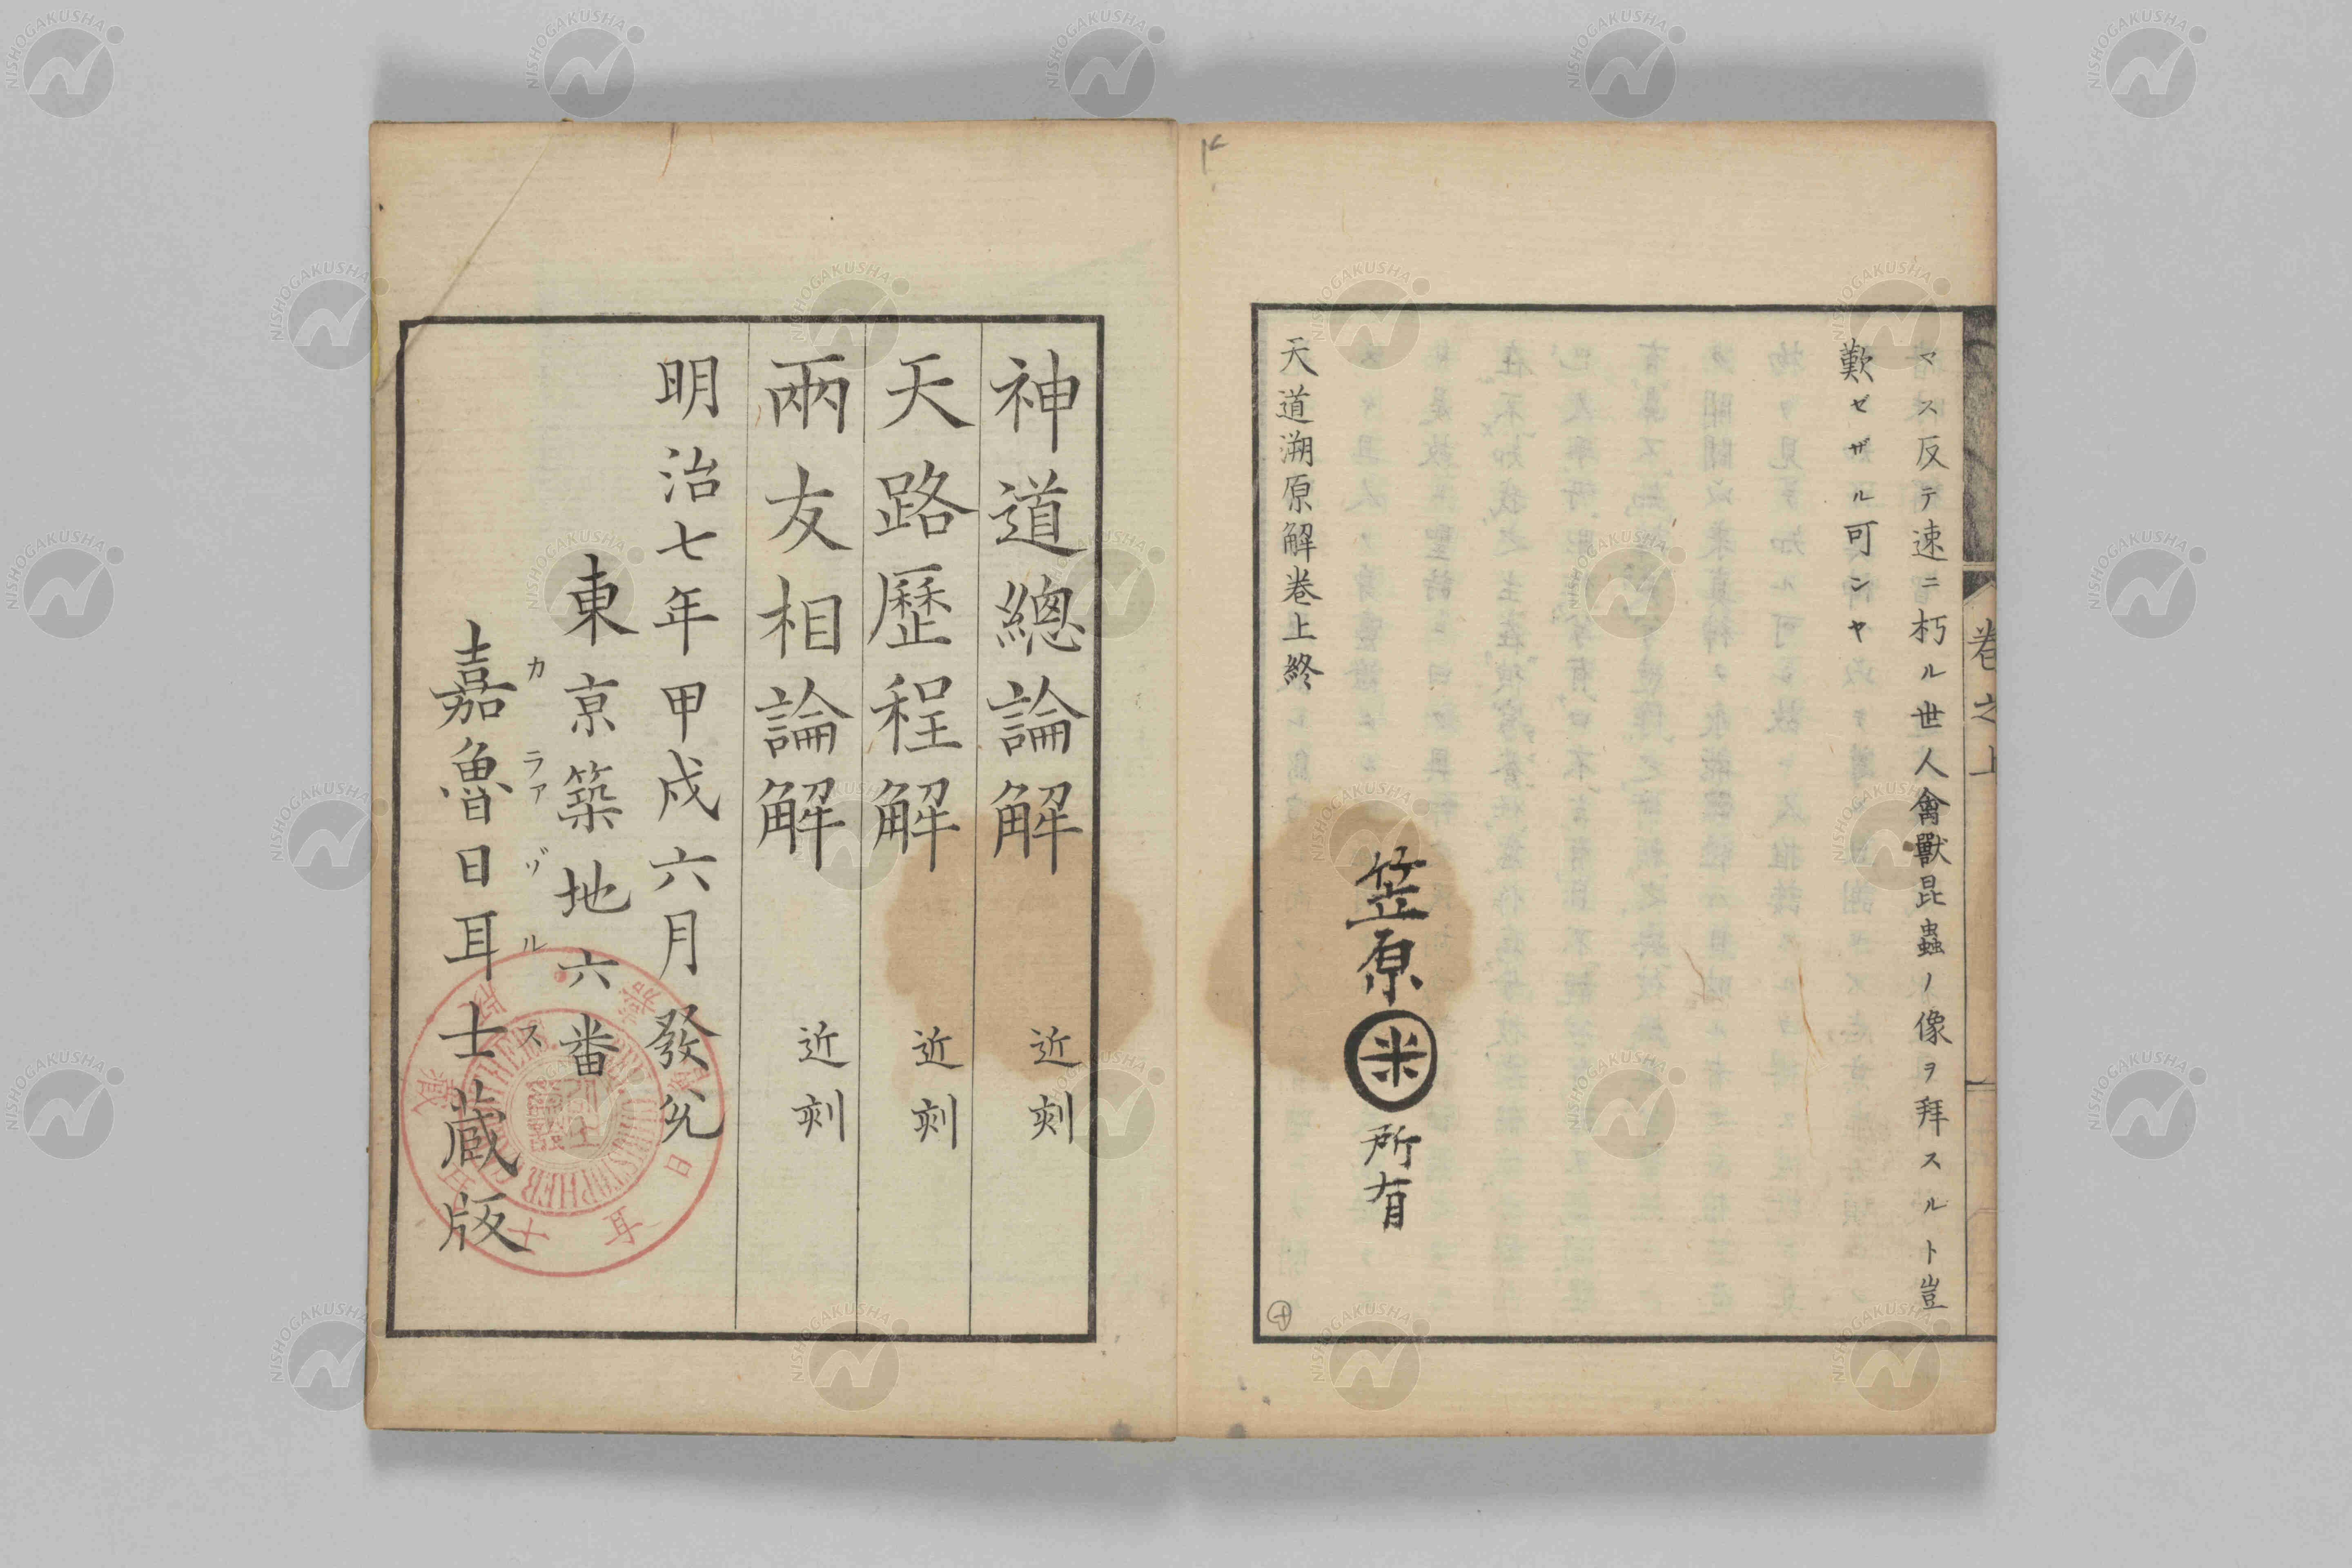 マス反テ速ニ朽ル世人禽獸昆蟲ノ像ヲ拜スルト豈
歎ゼザル可ンヤ
天道溯原解卷上終
笠原米所有
卷之上
神道總論解 近刻
天路歷程解 近刻
兩友相論解 近刻
明治七年甲戌六月發兌
東京築地六番
カラァヅルス
嘉魯日耳士蔵版
NISHOGAKUSHA